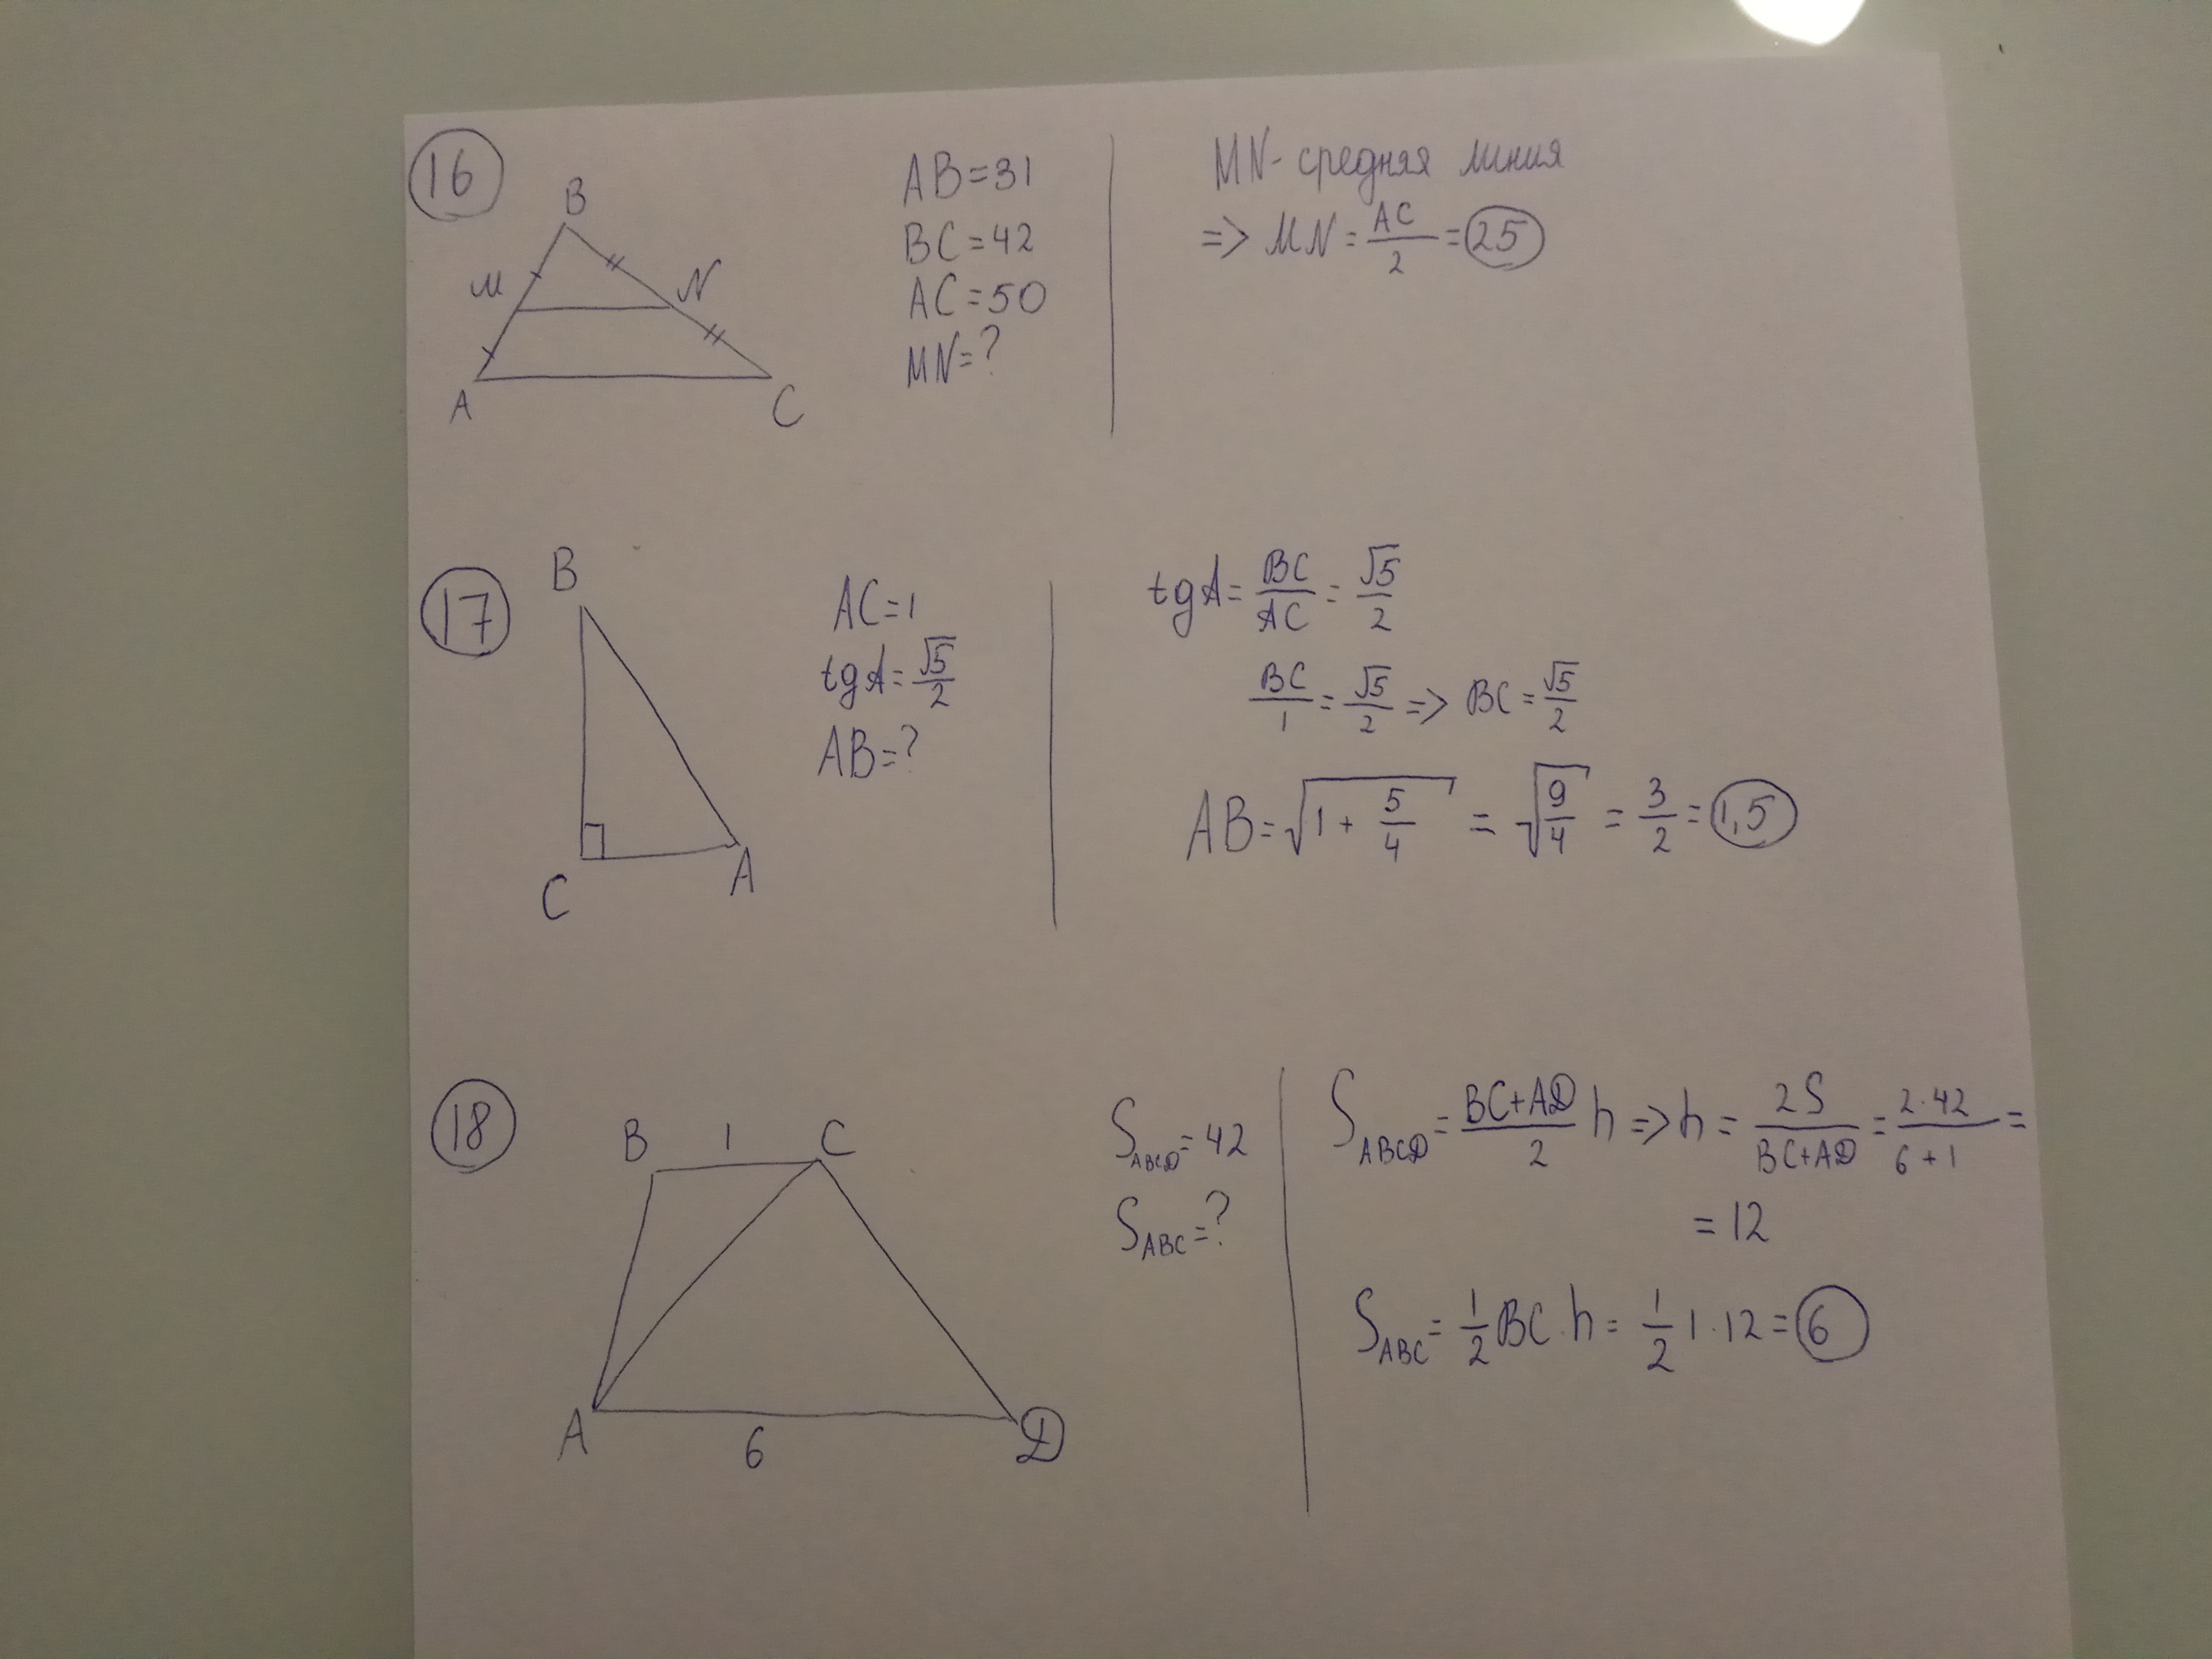 16
B
M
N
A
C
AB=31
BC=42
AC=50
MN=?
MN- средняя линия
=> MN = AC/2 = 25
17
B
C
A
AC=1
tgA=√5/2
AB=?
tgA = BC/AC = √5/2
BC/1 = √5/2 => BC = √5/2
AB = √(1 + 5/4) = √(9/4) = 3/2 = 1,5
18
B 1 C
A
6
D
S_ABCD = 42
S_ABC = ?
S_ABCD = (BC+AD)/2 h => h = 2S/(BC+AD) = 2·42/(6+1) =
= 12
S_ABC = 1/2 BC·h = 1/2 1·12 = 6